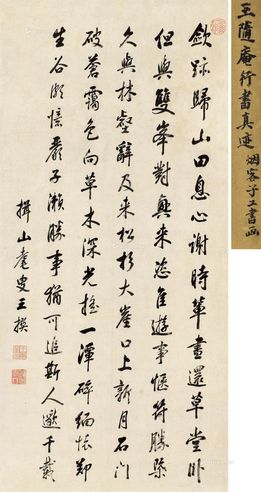 歛跡歸山田息心謝時輩晝還草堂卧
但與雙峯對興來恣佳遊事愜符勝槩
久與林壑辭及来松杉大崖口上新月石門
破蒼靄色向草木深光搖一潭碎緬懷鄭
生谷頗憶嚴子瀨勝事猶可追斯人邈千載
揖山菴叟王撰
王隨庵行書真迹
烟客子工書画